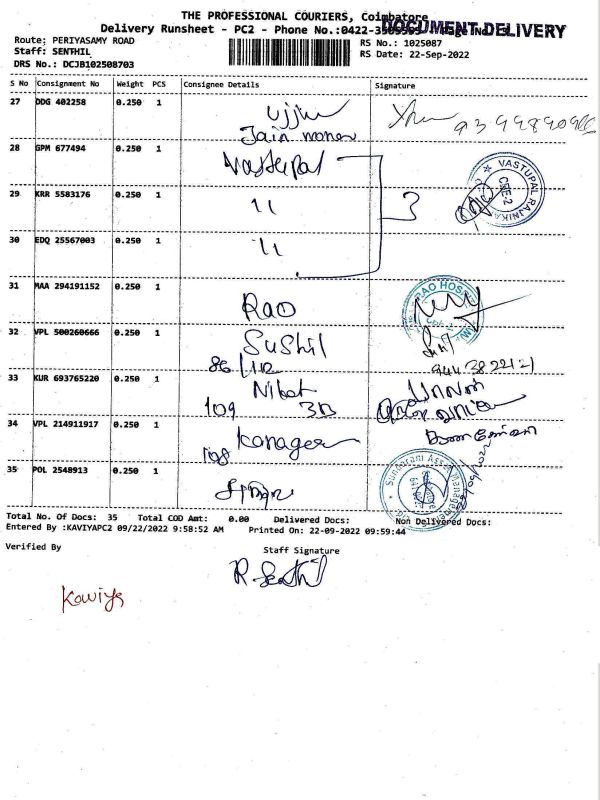 THE PROFESSIONAL COURIERS, Coimbatore
DOCUMENT DELIVERY
Delivery Runsheet - PC2 - Phone No.:0422-
Route: PERIYASAMY ROAD
RS No.: 1025087
Staff: SENTHIL
RS Date: 22-Sep-2022
DRS No.: DCJB102508703
S No Consignment No Weight PCS Consignee Details Signature
27 DDG 402258 0.250 1
Jain
28 GPM 677494 0.250 1 Vastupal
VASTUPAL
CBE-2
29 KRR 5583176 0.250 1 11 3
30 EDQ 25567003 0.250 1 11
31 MAA 294191152 0.250 1 Rao
RAO HOS
32 VPL 500260666 0.250 1 Sushil
86/112
33 KUR 693765220 0.250 1
109 3B
34 VPL 214911917 0.250 1 Kanager
108
35 POL 2548913 0.250 1
Sundaram Asset Management
Total No. Of Docs: 35 Total COD Amt: 0.00 Delivered Docs: Non Delivered Docs:
Entered By :KAVIYAPC2 09/22/2022 9:58:52 AM Printed On: 22-09-2022 09:59:44
Verified By Staff Signature
R. Senthil
Kaviya